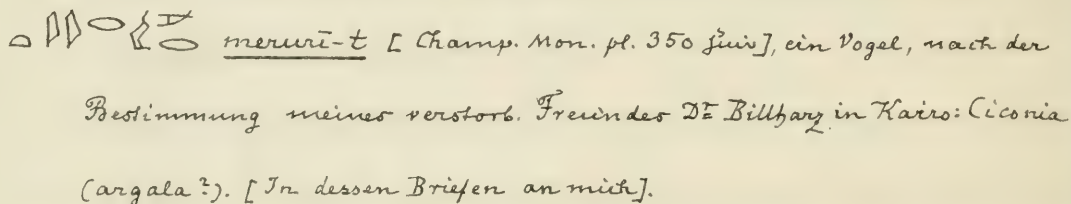 meruri-t [Champ. Mon. pl. 350 suiv], ein Vogel, nach der
Bestimmung meines verstorb. Freundes Dr Billharz in Kairo: Ciconia
(argala?). [In dessen Briefen an mich].